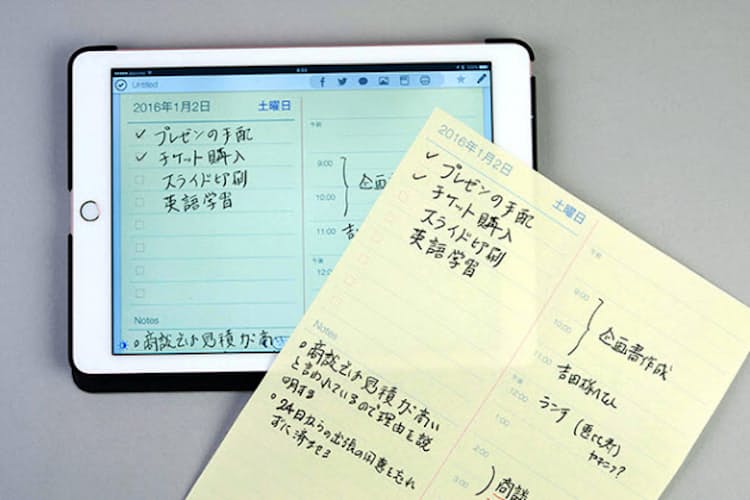 9:53
Untitled
2016年1月2日 土曜日
プレゼンの手配
チケット購入
スライド印刷
英語学習
午前
9:00
10:00
11:00
午後
12:00
企画
吉
Notes
商談では見積が高い
2016年1月2日
土曜日
プレゼンの手配
チケット購入
スライド印刷
英語学習
Notes
商談では見積が高い
と言われているので理由を説
明する
24日からの出張の用意を忘れ
ずに済ませる
午前
9:00
10:00
企画書作成
11:00
吉田様TEL
午後
12:00
ランチ (恵比寿)
1:00
ヤキニク?
2:00
商談
3:00